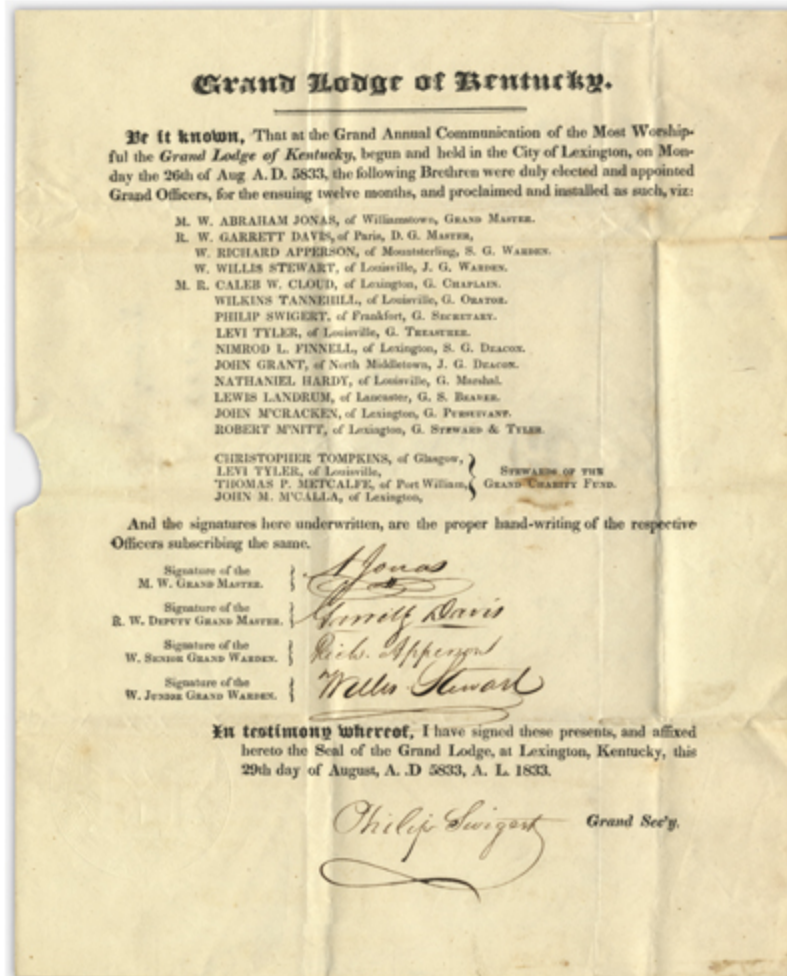 Grand Lodge of Kentucky.
Be it known, That at the Grand Annual Communication of the Most Worship-
ful the Grand Lodge of Kentucky, begun and held in the City of Lexington, on Mon-
day the 26th of Aug A. D. 5833, the following Brethren were duly elected and appointed
Grand Officers, for the ensuing twelve months, and proclaimed and installed as such, viz:
M. W. ABRAHAM JONAS, of Williamstown, GRAND MASTER.
R. W. GARRETT DAVIS, of Paris, D. G. MASTER,
W. RICHARD APPERSON, of Mountsterling, S. G. WARDEN.
W. WILLIS STEWART, of Louisville, J. G. WARDEN.
M. R. CALEB W. CLOUD, of Lexington, G. CHAPLAIN.
WILKINS TANNEHILL, of Louisville, G. ORATOR.
PHILIP SWIGERT, of Frankfort, G. SECRETARY.
LEVI TYLER, of Louisville, G. TREASURER.
NIMROD L. FINNELL, of Lexington, S. G. DEACON.
JOHN GRANT, of North Middletown, J. G. DEACON.
NATHANIEL HARDY, of Louisville, G. Marshal.
LEWIS LANDRUM, of Lancaster, G. S. BEARER.
JOHN M'CRACKEN, of Lexington, G. PURSUIVANT.
ROBERT M'NITT, of Lexington, G. STEWARD & TYLER.
CHRISTOPHER TOMPKINS, of Glasgow,
LEVI TYLER, of Louisville,
THOMAS P. METCALFE, of Port William,
JOHN M. M'CALLA, of Lexington,
STEWARDS OF THE
GRAND CHARITY FUND.
And the signatures here underwritten, are the proper hand-writing of the respective
Officers subscribing the same.
Signature of the
M. W. GRAND MASTER.
A Jonas
Signature of the
R. W. DEPUTY GRAND MASTER.
Garrett Davis
Signature of the
W. SENIOR GRAND WARDEN.
Rich. Apperson
Signature of the
W. JUNIOR GRAND WARDEN.
Willis Stewart
In testimony whereof, I have signed these presents, and affixed
hereto the Seal of the Grand Lodge, at Lexington, Kentucky, this
29th day of August, A. .D 5833, A. L. 1833.
Philip Swigert Grand Sec'y.